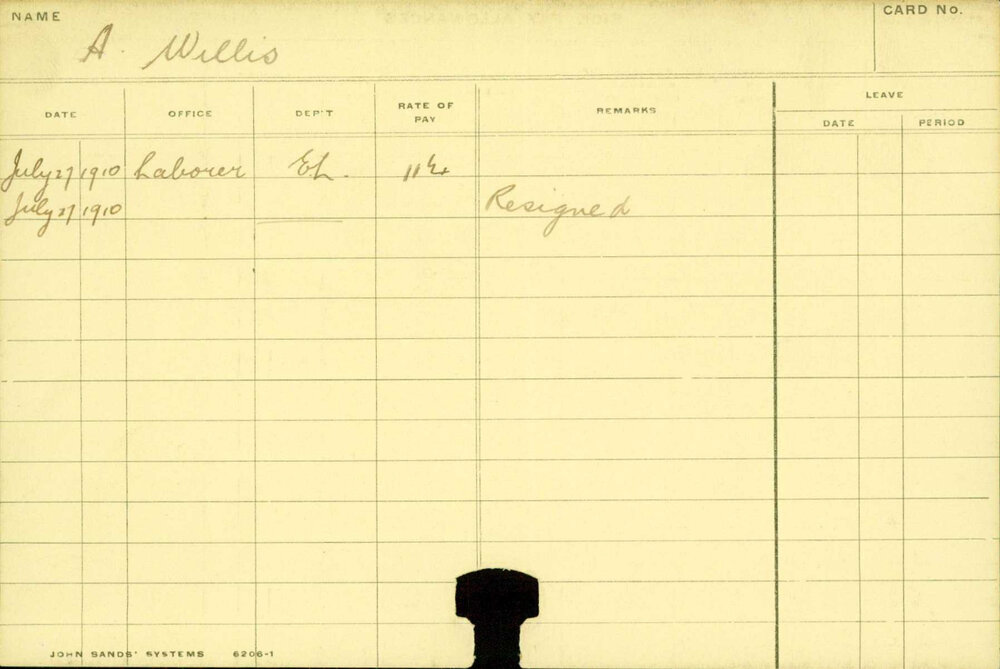 NAME
CARD No.
A. Willis
DATE OFFICE DEP'T RATE OF PAY REMARKS LEAVE
DATE PERIOD
July 27 1910 Laborer EL.
July 27 1910 Resigned
JOHN SANDS' SYSTEMS 6206-1